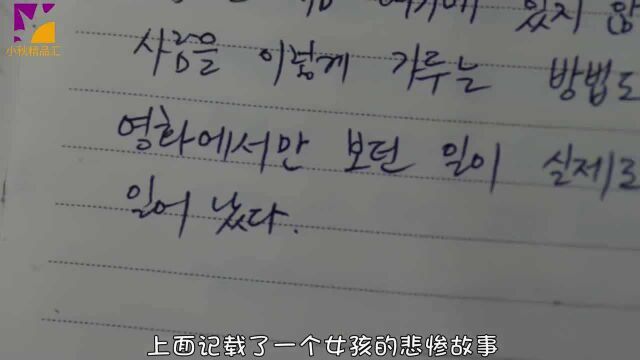 여기에 있지 않
小秋精品汇
사람을 이렇게 가두는 방법도
영화에서만 보던 일이 실제로
일어 났다.
上面记载了一个女孩的悲惨故事